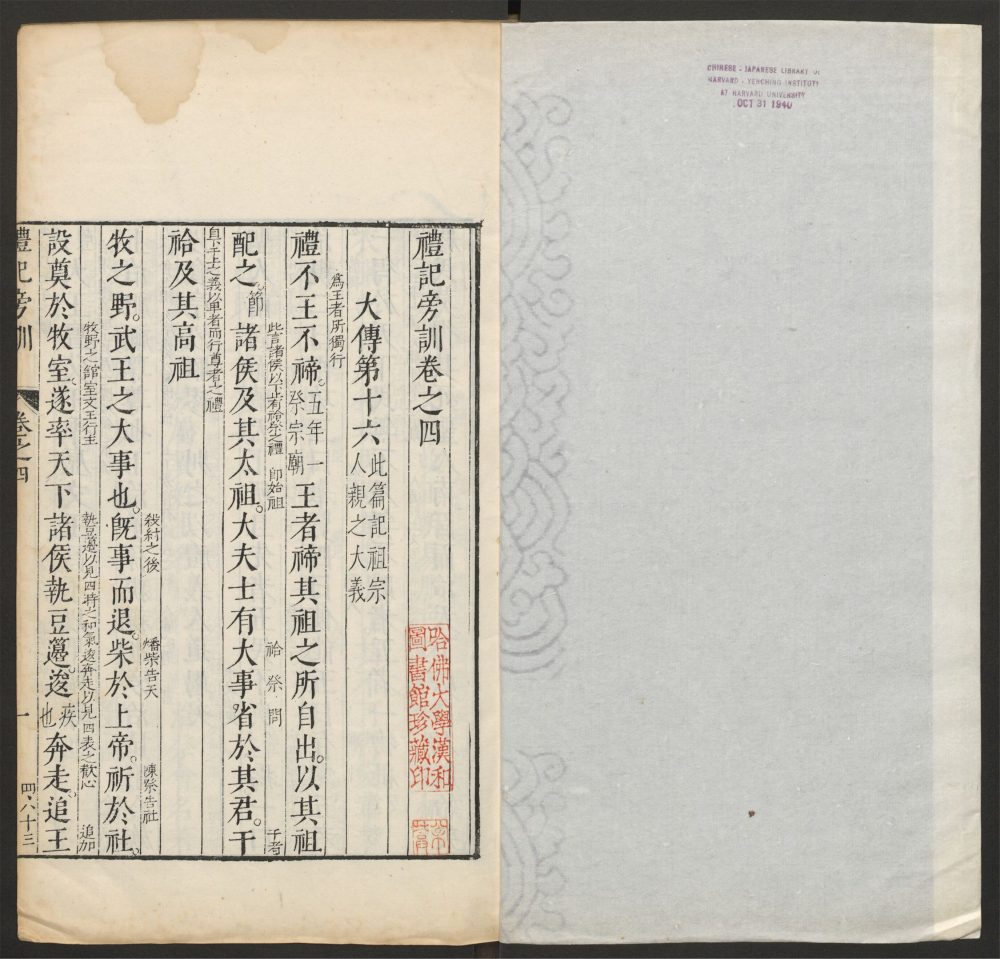 CHINESE - JAPANESE LIBRARY OF
HARVARD - YENCHING INSTITUTE
AT HARVARD UNIVERSITY
OCT 31 1940
禮記旁訓卷之四
哈佛大學漢和
圖書館珍藏印
大傳第十六
此篇記祖宗
人親之大義
為王者所獨行
禮不王不禘。五年一祭宗廟王者禘其祖之所自出。以其祖
此言諸侯以下有祫祭之禮 即始祖 祫祭 問 干者
配之。節諸侯及其太祖。大夫士有大事省於其君。干
自下干上之義以卑者而行尊者之禮
祫及其高祖
殺紂之後 燔柴告天 陳祭告社
牧之野。武王之大事也。旣事而退。柴於上帝。祈於社。
牧野之館室文王行主 執豆籩以見四時之和氣逡奔走以見四表之歡心 追加
設奠於牧室。遂率天下諸侯執豆籩。逡疾也奔走。追王
禮記旁訓 卷之四 一 四·六十三